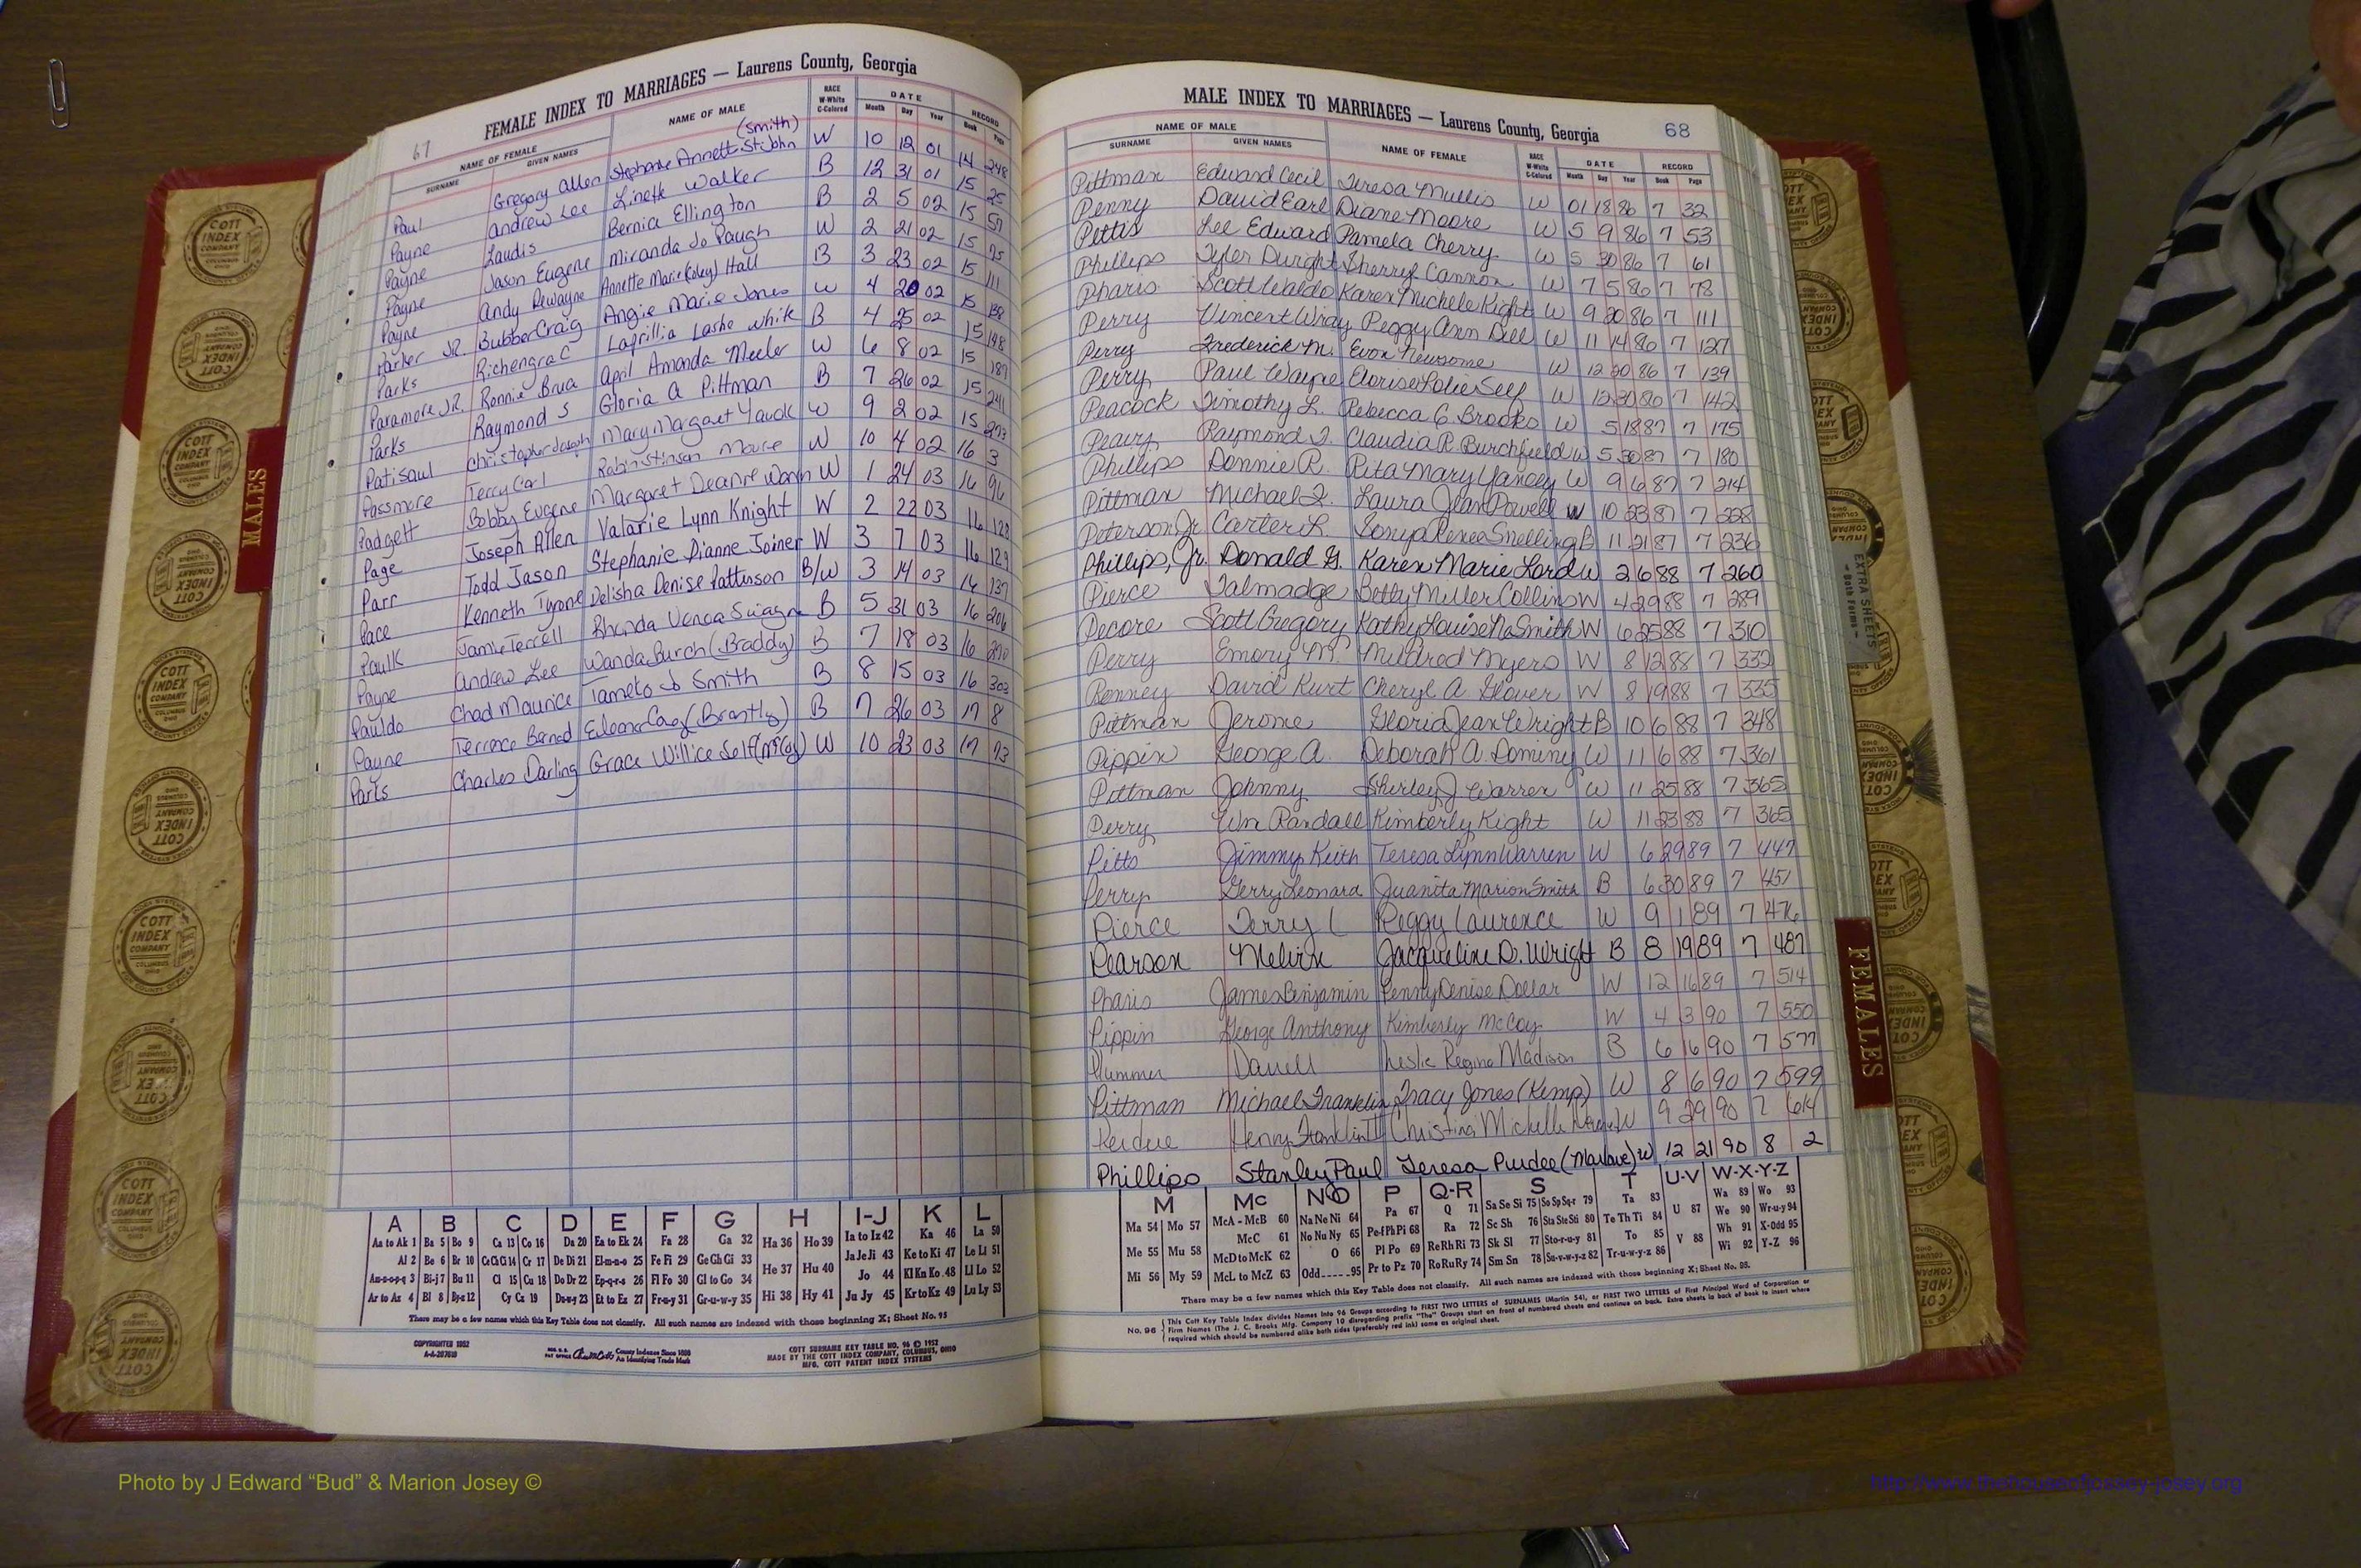 67
FEMALE INDEX TO MARRIAGES — Laurens County, Georgia
NAME OF FEMALE
SURNAME GIVEN NAMES
NAME OF MALE
RACE W-White C-Colored
DATE Month Day Year
RECORD Book Page
(Smith)
Paul Gregory Allen Stephanie Annette St.John W 10 12 01 14 248
Payne Andrew Lee Linette Walker B 12 31 01 15 25
Payne Laudis Bernice Ellington B 2 5 02 15 59
Payne Jason Eugene Miranda Jo Paugh W 2 21 02 15 75
Payne Andy Dewayne Annette Marie (Coley) Hall B 3 23 02 15 111
Parker JR. Bubber Craig Angie Marie Jones W 4 20 02 15 138
Parks Richengra C Laprillia Lashe White B 4 25 02 15 148
Paramore JR. Ronnie April Amanda Meeler W 6 8 02 15 187
Parks Raymond S Gloria A Pittman B 7 26 02 15 241
Patisaul Christopher Joseph Mary Margaret W 9 2 02 15 273
Passmore Terry Carl Robin Stinson Moore W 10 4 02 16 3
Padgett Bobby Eugene Margaret Deanne W 1 24 03 16 96
Page Joseph Allen Valarie Lynn Knight W 2 22 03 16 128
Parr Todd Jason Stephanie Dianne Joiner W 3 7 03 16 129
Pace Kenneth Tyrone Delisha Denise Patterson B/W 3 14 03 16 137
Paulk Jamie Terrell Rhonda B 5 31 03 16 206
Payne Andrew Lee Wanda Burch (Braddy) B 7 18 03 16
Pauldo Chad Maurice Tameto Jo Smith B 8 15 03 16 303
Payne Terrence Bernad Eleanor (Brantly) B 7 26 03 17 8
Paris Charles Darling Grace Willice Self (McCoy) W 10 23 03 17 73
A B C D E F G H I-J K L
Aa to Ak 1 Ba 5 Bo 9 Ca 13 Co 16 Da 20 Ea to Ek 24 Fa 28 Ga 32 Ha 36 Ho 39 Ia to Iz 42 Ka 46 La 50
Al 2 Be 6 Br 10 Ce Ch Ci 14 Cr 17 De Di 21 El-m-n-o 25 Fe Fi 29 Ge Gh Gi 33 He 37 Hu 40 Ja Je Ji 43 Ke to Ki 47 Le Li 51
Am-n-o-p-q 3 Bi-j 7 Bu 11 Cl 15 Cu 18 Do Dr 22 Ep-q-r-s 26 Fl Fo 30 Gl to Go 34 Jo 44 Kl Kn Ko 48 Ll Lo 52
Ar to Az 4 Bl 8 By-z 12 Cy Cz 19 Du-w-y 23 Et to Ez 27 Fr-u-y 31 Gr-u-w-y 35 Hi 38 Hy 41 Ju Jy 45 Kr to Kz 49 Lu Ly 53
There may be a few names which this Key Table does not classify. All such names are indexed with those beginning X; Sheet No. 95
COPYRIGHTED 1952
A-A-267610
County Indexes Since 1888
An Identifying Trade Mark
COTT SURNAME KEY TABLE NO. 96 © 1952
MADE BY THE COTT INDEX COMPANY, COLUMBUS, OHIO
MFG. COTT PATENT INDEX SYSTEMS
MALE INDEX TO MARRIAGES — Laurens County, Georgia
68
NAME OF MALE
SURNAME GIVEN NAMES
NAME OF FEMALE
RACE W-White C-Colored
DATE Month Day Year
RECORD Book Page
Pittman Edward Cecil Teresa Mullis W 01 18 86 7 32
Penny David Earl Diane Moore W 5 9 86 7 53
Pettis Lee Edward Pamela Cherry W 5 30 86 7 61
Phillips Tyler Dwight Sherryl Cannon W 7 5 86 7 78
Pharis Scott Waldo Karen Michele Kight W 9 20 86 7 111
Perry Vincent Wray Peggy Ann Dell W 11 14 86 7 127
Perry Frederick M. Evon Newsome W 12 20 86 7 139
Perry Paul Wayne Eloise Self W 12 30 86 7 142
Peacock Timothy L. Rebecca G. Brooks W 5 18 87 7 175
Peavy Raymond J. Claudia R. Burchfield W 5 30 87 7 180
Phillips Donnie R. Rita Mary Yancey W 9 6 87 7 214
Pittman Michael F. Laura Jean Powell W 10 23 87 7 228
Peterson Jr. Carter L. Sonya Renea Snelling B 11 21 87 7 236
Phillips, Jr. Donald G. Karen Marie Lord W 2 6 88 7 260
Pierce Talmadge Betty Miller Collins W 4 29 88 7 289
Pecore Scott Gregory Kathy Louise NaSmith W 6 25 88 7 310
Perry Emory M. Mildred Myers W 8 12 88 7 332
Penney David Kurt Cheryl A Glover W 8 19 88 7 335
Pittman Jerome Gloria Jean Wright B 10 6 88 7 348
Pippin George A. Deborah A. Dominy W 11 6 88 7 361
Pittman Johnny Shirley J Warren W 11 25 88 7 365
Perry Wm Randall Kimberly Kight W 11 23 88 7 365
Pitts Jimmy Keith Teresa Lynn Warren W 6 29 89 7 447
Perry Gerry Leonard Juanita Marion Smith B 6 30 89 7 451
Pierce Terry L Peggy Laurence W 9 1 89 7 476
Pearson Melvin Jacqueline D. Wright B 8 19 89 7 487
Pharis James Benjamin Penny Denise Dollar W 12 16 89 7 514
Pippin George Anthony Kimberly McCoy W 4 3 90 7 550
Plummer Darrell Leslie Regina Madison B 6 16 90 7 577
Pittman Michael Franklin Tracy Jones (Kemp) W 8 6 90 7 599
Perdue Henry Franklin III Christina Michelle W 9 29 90 7 614
Phillips Stanley Paul Teresa Purdee (Marlowe) W 12 21 90 8 2
M Mc N O P Q-R S T U-V W-X-Y-Z
Ma 54 Mo 57 McA - McB 60 Na Ne Ni 64 Pa 67 Q 71 Sa Se Si 75 So Sp Sq-r 79 Ta 83 U 87 Wa 89 Wo 93
Me 55 Mu 58 McC 61 No Nu Ny 65 Pe-f Ph Pi 68 Ra 72 Sc Sh 76 Sta Ste Sti 80 Te Th Ti 84 We 90 Wr-u-y 94
McD to McK 62 O 66 Pl Po 69 Re Rh Ri 73 Sk Sl 77 Sto-r-u-y 81 To 85 V 88 Wh 91 X-Odd 95
Mi 56 My 59 McL to McZ 63 Odd-----95 Pr to Pz 70 Ro Ru Ry 74 Sm Sn 78 Su-v-w-y-z 82 Tr-u-w-y-z 86 Wi 92 Y-Z 96
There may be a few names which this Key Table does not classify. All such names are indexed with those beginning X; Sheet No. 95.
No. 96 This Cott Key Table Index divides Names into 96 Groups according to FIRST TWO LETTERS of SURNAMES (Martin 54), or FIRST TWO LETTERS of First Principal Word of Corporation or
Firm Names (The J. C. Brooks Mfg. Company 10 disregarding prefix "The" Groups start on front of numbered sheets and continue on back. Extra sheets in back of book to insert where
required which should be numbered alike both sides (preferably red ink) same as original sheet.
MALES
FEMALES
EXTRA SHEETS
— Both Forms —
COTT INDEX COMPANY COLUMBUS OHIO
Photo by J Edward “Bud” & Marion Josey ©
http://www.thehouseofjossey-josey.org